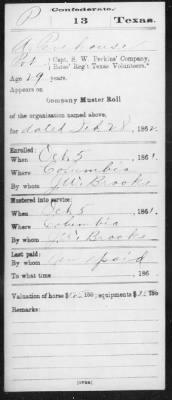 P Confederate.
13 Texas.
Pvt Capt. S. W. Perkins' Company,
Bates' Reg't Texas Volunteers.*
Age 29 years.
Appears on
Company Muster Roll
of the organization named above,
for dated 28, 1862.
Enrolled:
When Oct. 5, 1861.
Where Columbia
By whom J. W. Brooks
Mustered into service:
When Oct. 5, 1861.
Where Columbia
By whom J. W. Brooks
Last paid:
By whom unpaid
To what time , 186 .
Valuation of horse $ /100; equipments $ /100
Remarks:
(OVER)